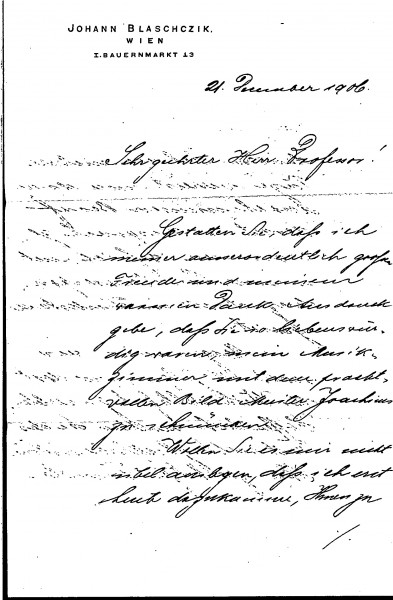 JOHANN BLASCHCZIK,
WIEN
I. BAUERNMARKT 13
21. Dezember 1906.
Sehr geehrter Herr Professor!
Gestatten Sie, daß ich
meiner ausserordentlich großen
Freude und meinem
warmen Dank Ausdruck
gebe, daß Sie so liebenswür-
dig waren, mein Musik-
zimmer mit dem pracht-
vollen Bild Meister Joachims
zu schmücken.
Wollen Sie es mir nicht
übel auslegen, daß ich erst
heut dazukomme, Ihnen zu
./.